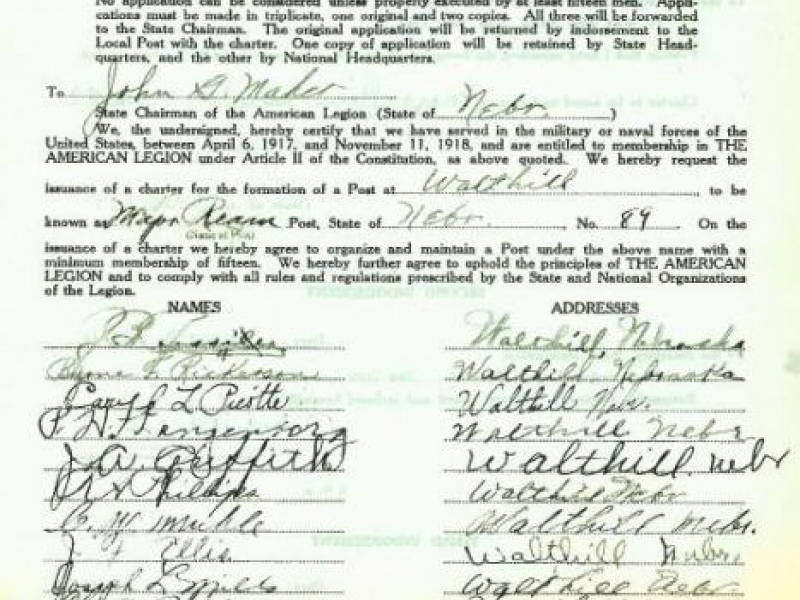 No application can be considered unless properly executed by at least fifteen men. Appli-
cations must be made in triplicate, one original and two copies. All three will be forwarded
to the State Chairman. The original application will be returned by indorsement to the
Local Post with the charter. One copy of application will be retained by State Head-
quarters, and the other by National Headquarters.
To John G. Maher
State Chairman of the American Legion (State of Nebr. )
We, the undersigned, hereby certify that we have served in the military or naval forces of the
United States, between April 6, 1917, and November 11, 1918, and are entitled to membership in THE
AMERICAN LEGION under Article II of the Constitution, as above quoted. We hereby request the
issuance of a charter for the formation of a Post at Walthill, to be
known as Major Ream Post, State of Nebr., No. 89 On the
(Name of Post)
issuance of a charter we hereby agree to organize and maintain a Post under the above name with a
minimum membership of fifteen. We hereby further agree to uphold the principles of THE AMERICAN
LEGION and to comply with all rules and regulations prescribed by the State and National Organizations
of the Legion.
NAMES ADDRESSES
Walthill, Nebraska
Walthill, Nebraska
L Picotte Walthill Nebr.
Walthill Nebr
J. A. Griffith Walthill. nebr
Phillips Walthill Nebr
C. Walthill Nebr.
J. F. Ellis Walthill Nebr.
Joseph L Walthill Nebr.